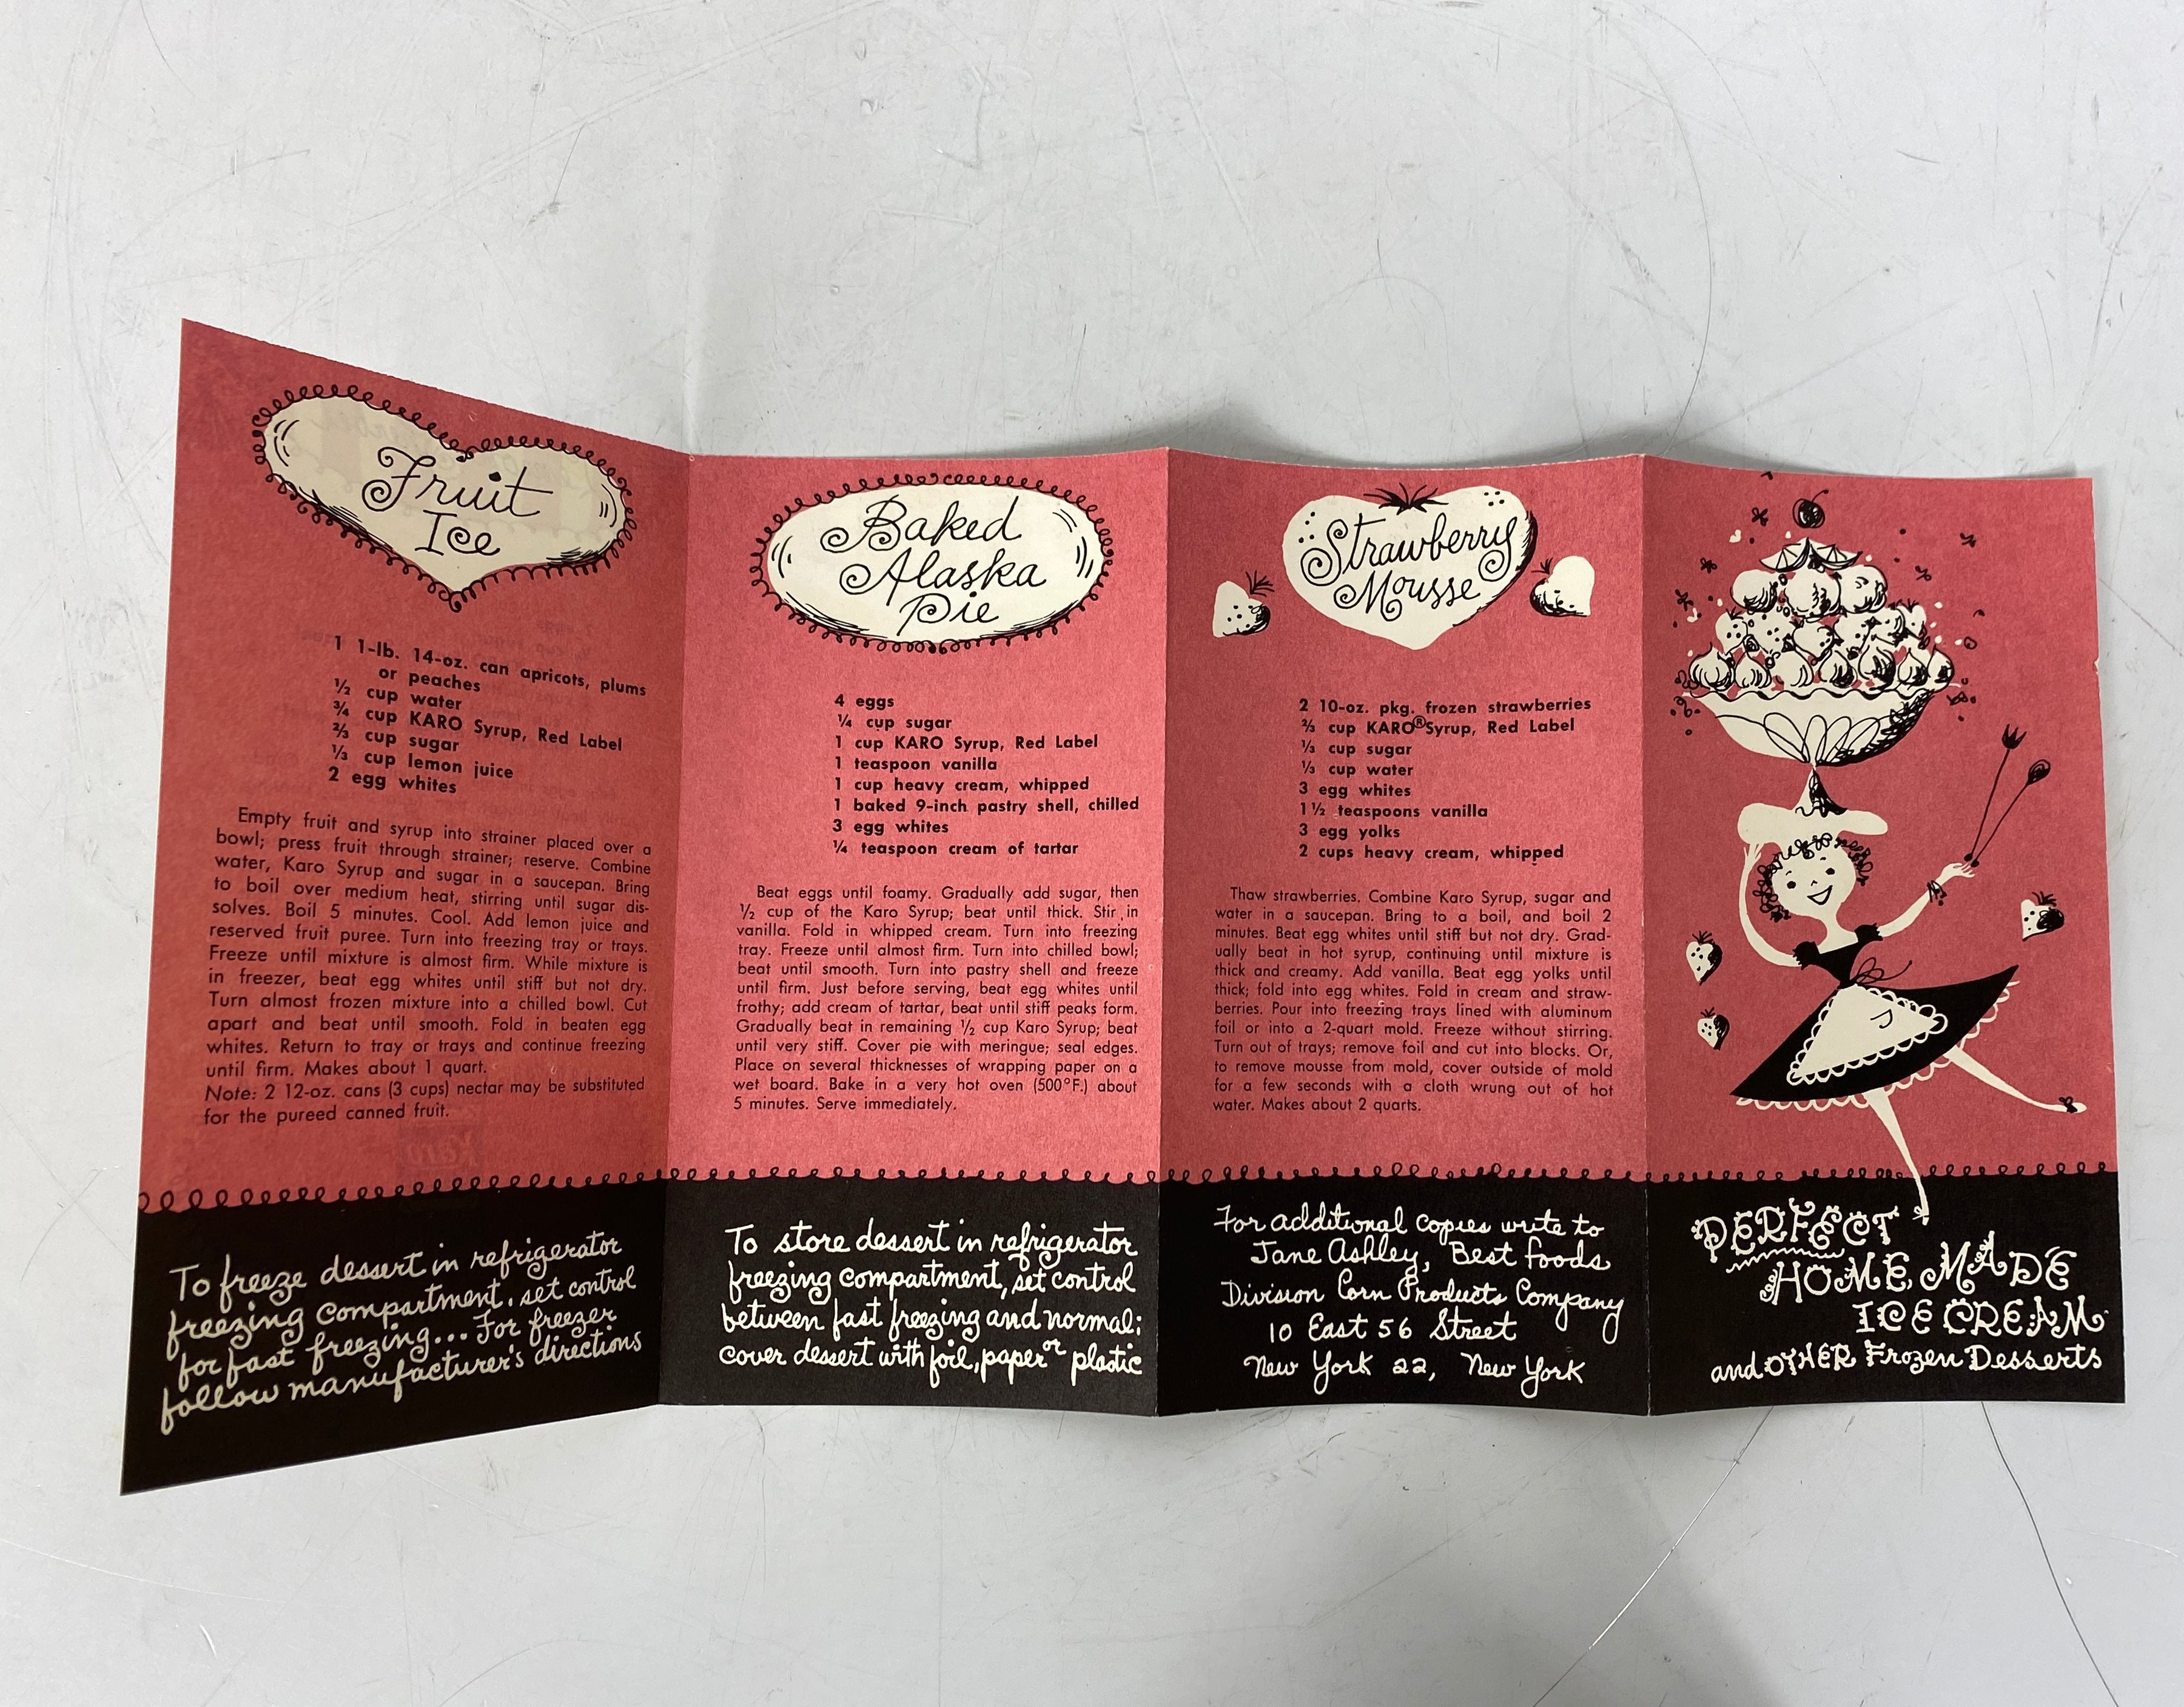 Fruit
Ice
1 1-lb. 14-oz. can apricots, plums
or peaches
½ cup water
¾ cup KARO Syrup, Red Label
⅔ cup sugar
⅓ cup lemon juice
2 egg whites
Empty fruit and syrup into strainer placed over a
bowl; press fruit through strainer; reserve. Combine
water, Karo Syrup and sugar in a saucepan. Bring
to boil over medium heat, stirring until sugar dis-
solves. Boil 5 minutes. Cool. Add lemon juice and
reserved fruit puree. Turn into freezing tray or trays.
Freeze until mixture is almost firm. While mixture is
in freezer, beat egg whites until stiff but not dry.
Turn almost frozen mixture into a chilled bowl. Cut
apart and beat until smooth. Fold in beaten egg
whites. Return to tray or trays and continue freezing
until firm. Makes about 1 quart.
Note: 2 12-oz. cans (3 cups) nectar may be substituted
for the pureed canned fruit.
To freeze dessert in refrigerator
freezing compartment, set control
for fast freezing... For freezer
follow manufacturer's directions
Baked
Alaska
Pie
4 eggs
¼ cup sugar
1 cup KARO Syrup, Red Label
1 teaspoon vanilla
1 cup heavy cream, whipped
1 baked 9-inch pastry shell, chilled
3 egg whites
¼ teaspoon cream of tartar
Beat eggs until foamy. Gradually add sugar, then
½ cup of the Karo Syrup; beat until thick. Stir in
vanilla. Fold in whipped cream. Turn into freezing
tray. Freeze until almost firm. Turn into chilled bowl;
beat until smooth. Turn into pastry shell and freeze
until firm. Just before serving, beat egg whites until
frothy; add cream of tartar, beat until stiff peaks form.
Gradually beat in remaining ½ cup Karo Syrup; beat
until very stiff. Cover pie with meringue; seal edges.
Place on several thicknesses of wrapping paper on a
wet board. Bake in a very hot oven (500°F.) about
5 minutes. Serve immediately.
To store dessert in refrigerator
freezing compartment, set control
between fast freezing and normal;
cover dessert with foil, paper or plastic
Strawberry
Mousse
2 10-oz. pkg. frozen strawberries
⅔ cup KARO® Syrup, Red Label
⅓ cup sugar
⅓ cup water
3 egg whites
1½ teaspoons vanilla
3 egg yolks
2 cups heavy cream, whipped
Thaw strawberries. Combine Karo Syrup, sugar and
water in a saucepan. Bring to a boil, and boil 2
minutes. Beat egg whites until stiff but not dry. Grad-
ually beat in hot syrup, continuing until mixture is
thick and creamy. Add vanilla. Beat egg yolks until
thick; fold into egg whites. Fold in cream and straw-
berries. Pour into freezing trays lined with aluminum
foil or into a 2-quart mold. Freeze without stirring.
Turn out of trays; remove foil and cut into blocks. Or,
to remove mousse from mold, cover outside of mold
for a few seconds with a cloth wrung out of hot
water. Makes about 2 quarts.
For additional copies write to
Jane Ashley, Best Foods
Division Corn Products Company
10 East 56 Street
New York 22, New York
PERFECT
HOME MADE
ICE CREAM
and OTHER Frozen Desserts